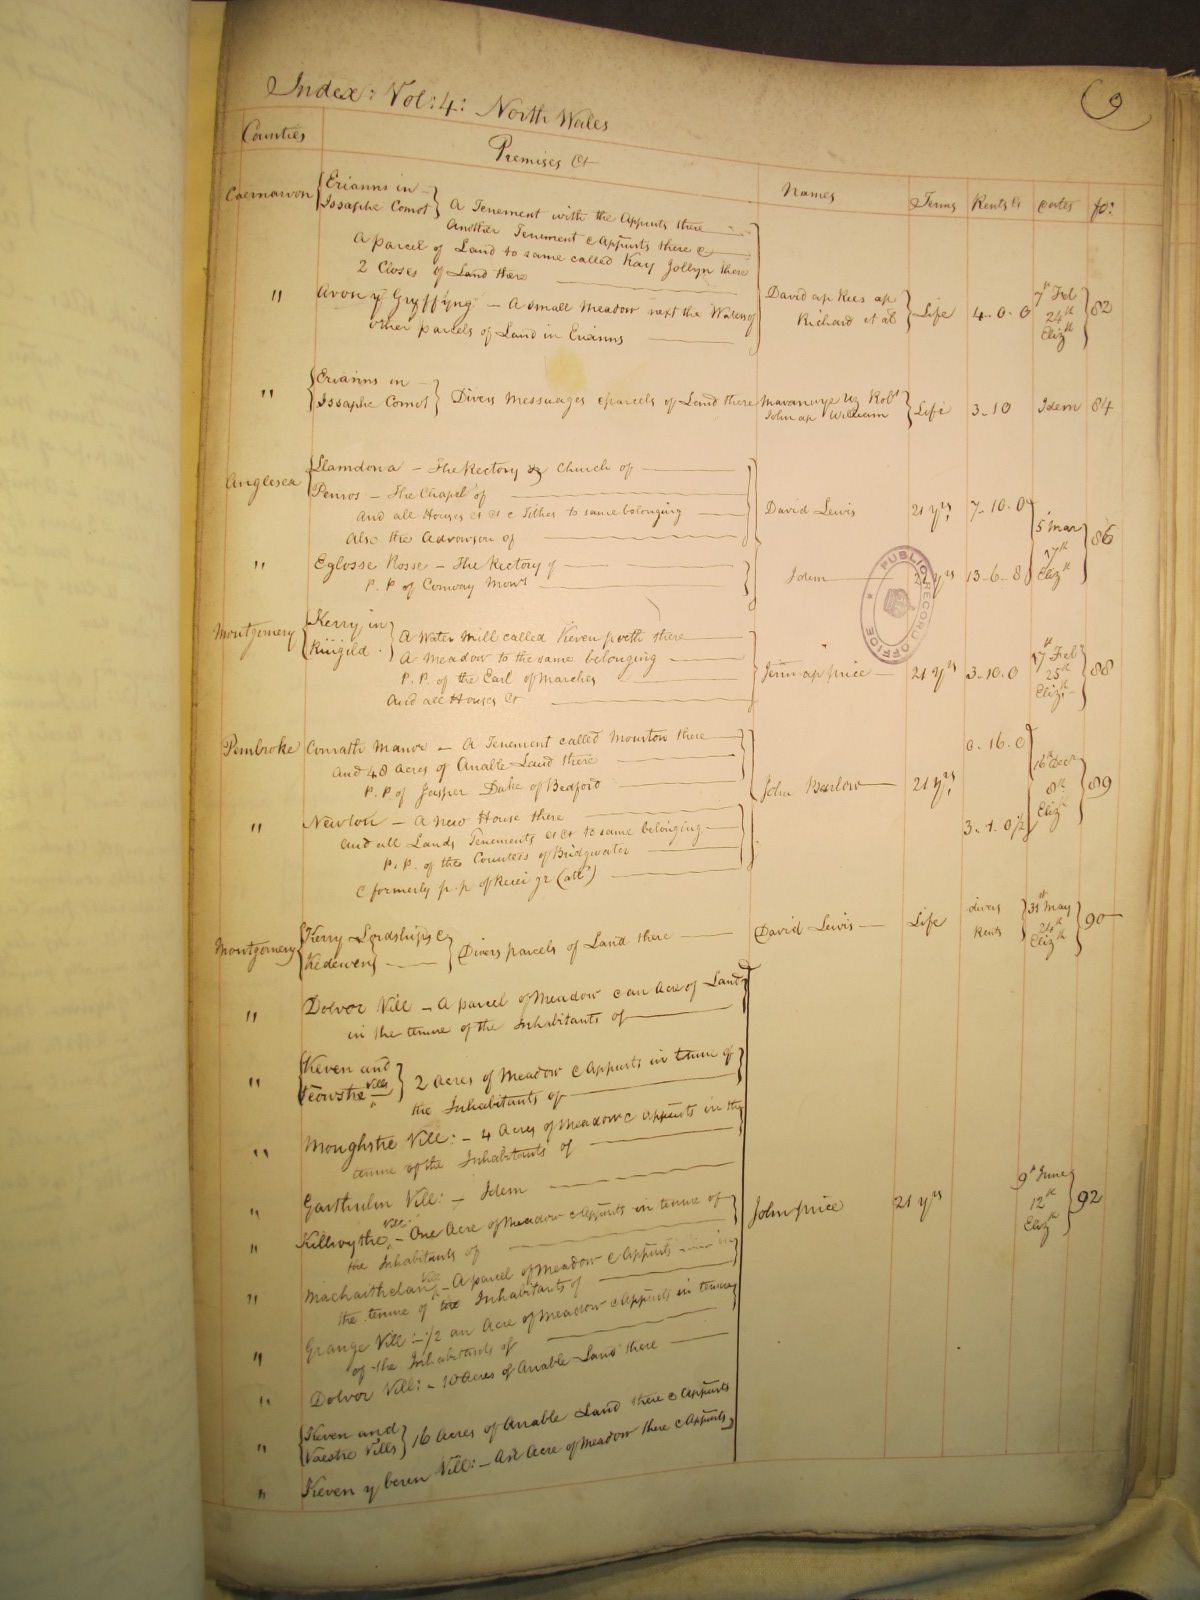 Index: Vol: 4: North Wales
9
Counties Premises &c Names Terms Rents &c Dates fo:
Caernarvon Erianns in A Tenement with the Appurts there
Issaphe Comot Another Tenement & Appurts there &
A parcel of Land to same called Kay Jollyn there
2 Closes of Land there
" Avon y Gryffyng - A small Meadow next the Waters of David ap Rees ap Life 4-0-0 7th Feb 82
other parcels of Land in Erianns Richard et al 24th
Elizth
" Erianns in
Issaphe Comot Divers Messuages & parcels of Land there Life 3-10 Idem 84
John ap William
Anglesea Llamdona - The Rectory & Church of
Penros - The Chapel of
And all Houses &c &c & Tithes to same belonging David Lewis 21 yrs 7-10-0
Also the Advowson of 5 Mar 86
" Eglosse Rosse - The Rectory of Idem 21 yrs 13-6-8 17th
P.P. of Conway Mony Elizth
PUBLIC RECORD OFFICE
Montgomery Kerry in A Water Mill called Keven poeth there
A Meadow to the same belonging 17th Feb
P.P. of the Earl of Marches ap price 21 yrs 3-10-0 25th 88
And all Houses &c Elizth
Pembroke Conrath Manor - A Tenement called Mourton there 0-16-0
and 48 Acres of Arable Land there 16th Decr
P.P. of Jasper Duke of Bedford John Barlow 21 yrs 8th 89
" Newton - A new House there Elizth
and all Lands Tenements &c &c to same belonging 3-1-0½
P.P. of the Countess of Bridgwater
& formerly p.p. of
Montgomery Kerry Lordships & David Lewis Life divers 31st May 90
Kedewen Divers parcels of Land there Rents 24th
Elizth
" Dolvor Vill - A parcel of Meadow & an Acre of Land
in the tenure of the Inhabitants of
" Keven and 2 Acres of Meadow & Appurts in tenure of
Vills the Inhabitants of
" Moughstre Vill: - 4 Acres of Meadow & Appurts in the
tenure of the Inhabitants of
" Garthulin Vill: - Idem 9th June
" Killroythe Vill - One Acre of Meadow & Appurts in tenure of John price 21 yrs 12th 92
the Inhabitants of Elizth
" Machaithelan Vill - A parcel of Meadow & Appurts in
the tenure of the Inhabitants of
" Grange Vill: - 1/2 an Acre of Meadow & Appurts in tenure
of the Inhabitants of
" Dolvor Vill: - 10 Acres of Arable Land there
" Keven and
Vaestre Vills 16 Acres of Arable Land there & Appurts
" Keven y beren Vill: - An Acre of Meadow there & Appurts